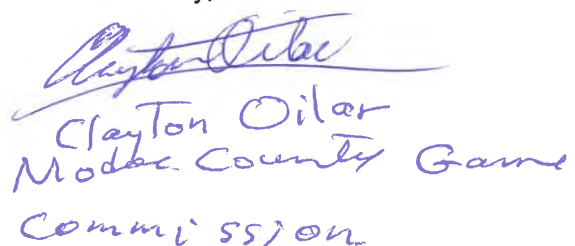 Clayton Oilar
Clayton Oilar
Modoc County Game
Commission